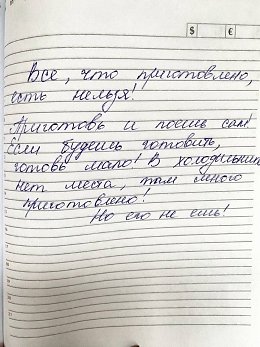 $ €
Всё, что приготовлено,
есть нельзя!
Приготовь и поешь сам!
Если будешь готовить,
готовь мало! В холодильнике
нет места, там много
приготовлено!
Но его не ешь!